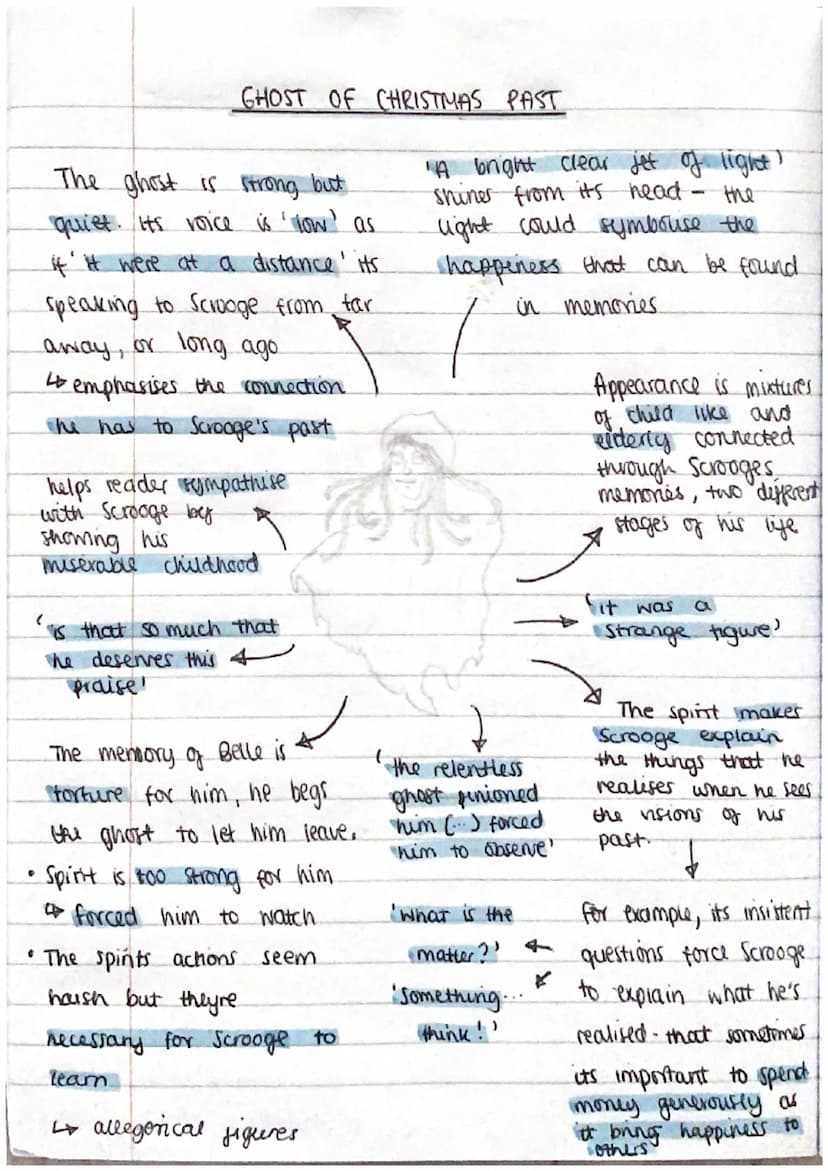 GHOST OF CHRISTMAS PAST
The ghost is strong but
quiet. Its voice is 'low' as
if 'it were at a distance' its
speaking to Scrooge from far
away, or long ago
↳ emphasises the connection
he has to Scrooge's past
'A bright clear jet of light'
shines from its head - the
light could symbolise the
happiness that can be found
in memories
Appearance is mixtures
of child like and
elderly connected
through Scrooges
memories, two different
stages of his life
helps reader sympathise
with Scrooge by
showing his
miserable childhood
'it was a
strange figure'
'is that so much that
he deserves this
praise'
The spirit makes
Scrooge explain
the things that he
realises when he sees
the visions of his
past.
The memory of Belle is
torture for him, he begs
the ghost to let him leave.
• Spirit is too strong for him
↳ forced him to watch
• The spirits actions seem
harsh but theyre
necessary for Scrooge to
learn
↳ allegorical figures
'the relentless
ghost pinioned
him (...) forced
him to observe'
'What is the
matter?'
'Something...
think!'
for example, its insistent
questions force Scrooge
to explain what he's
realised - that sometimes
its important to spend
money generously as
it bring happiness to
others